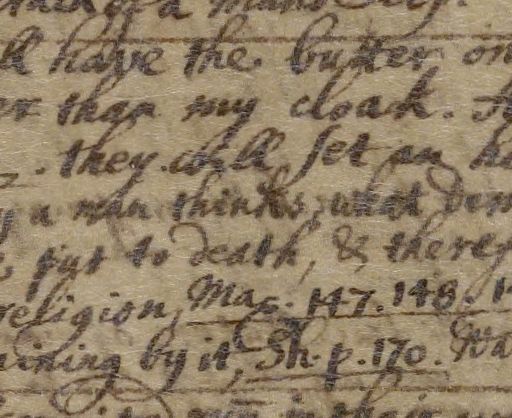 of a mans
ll have the butter on
er than my cloak.
they will set an h
a man thinks, what
put to death, & there
religion, Mac. 147. 148. 1
ining by it, Sh. p. 170. Wa